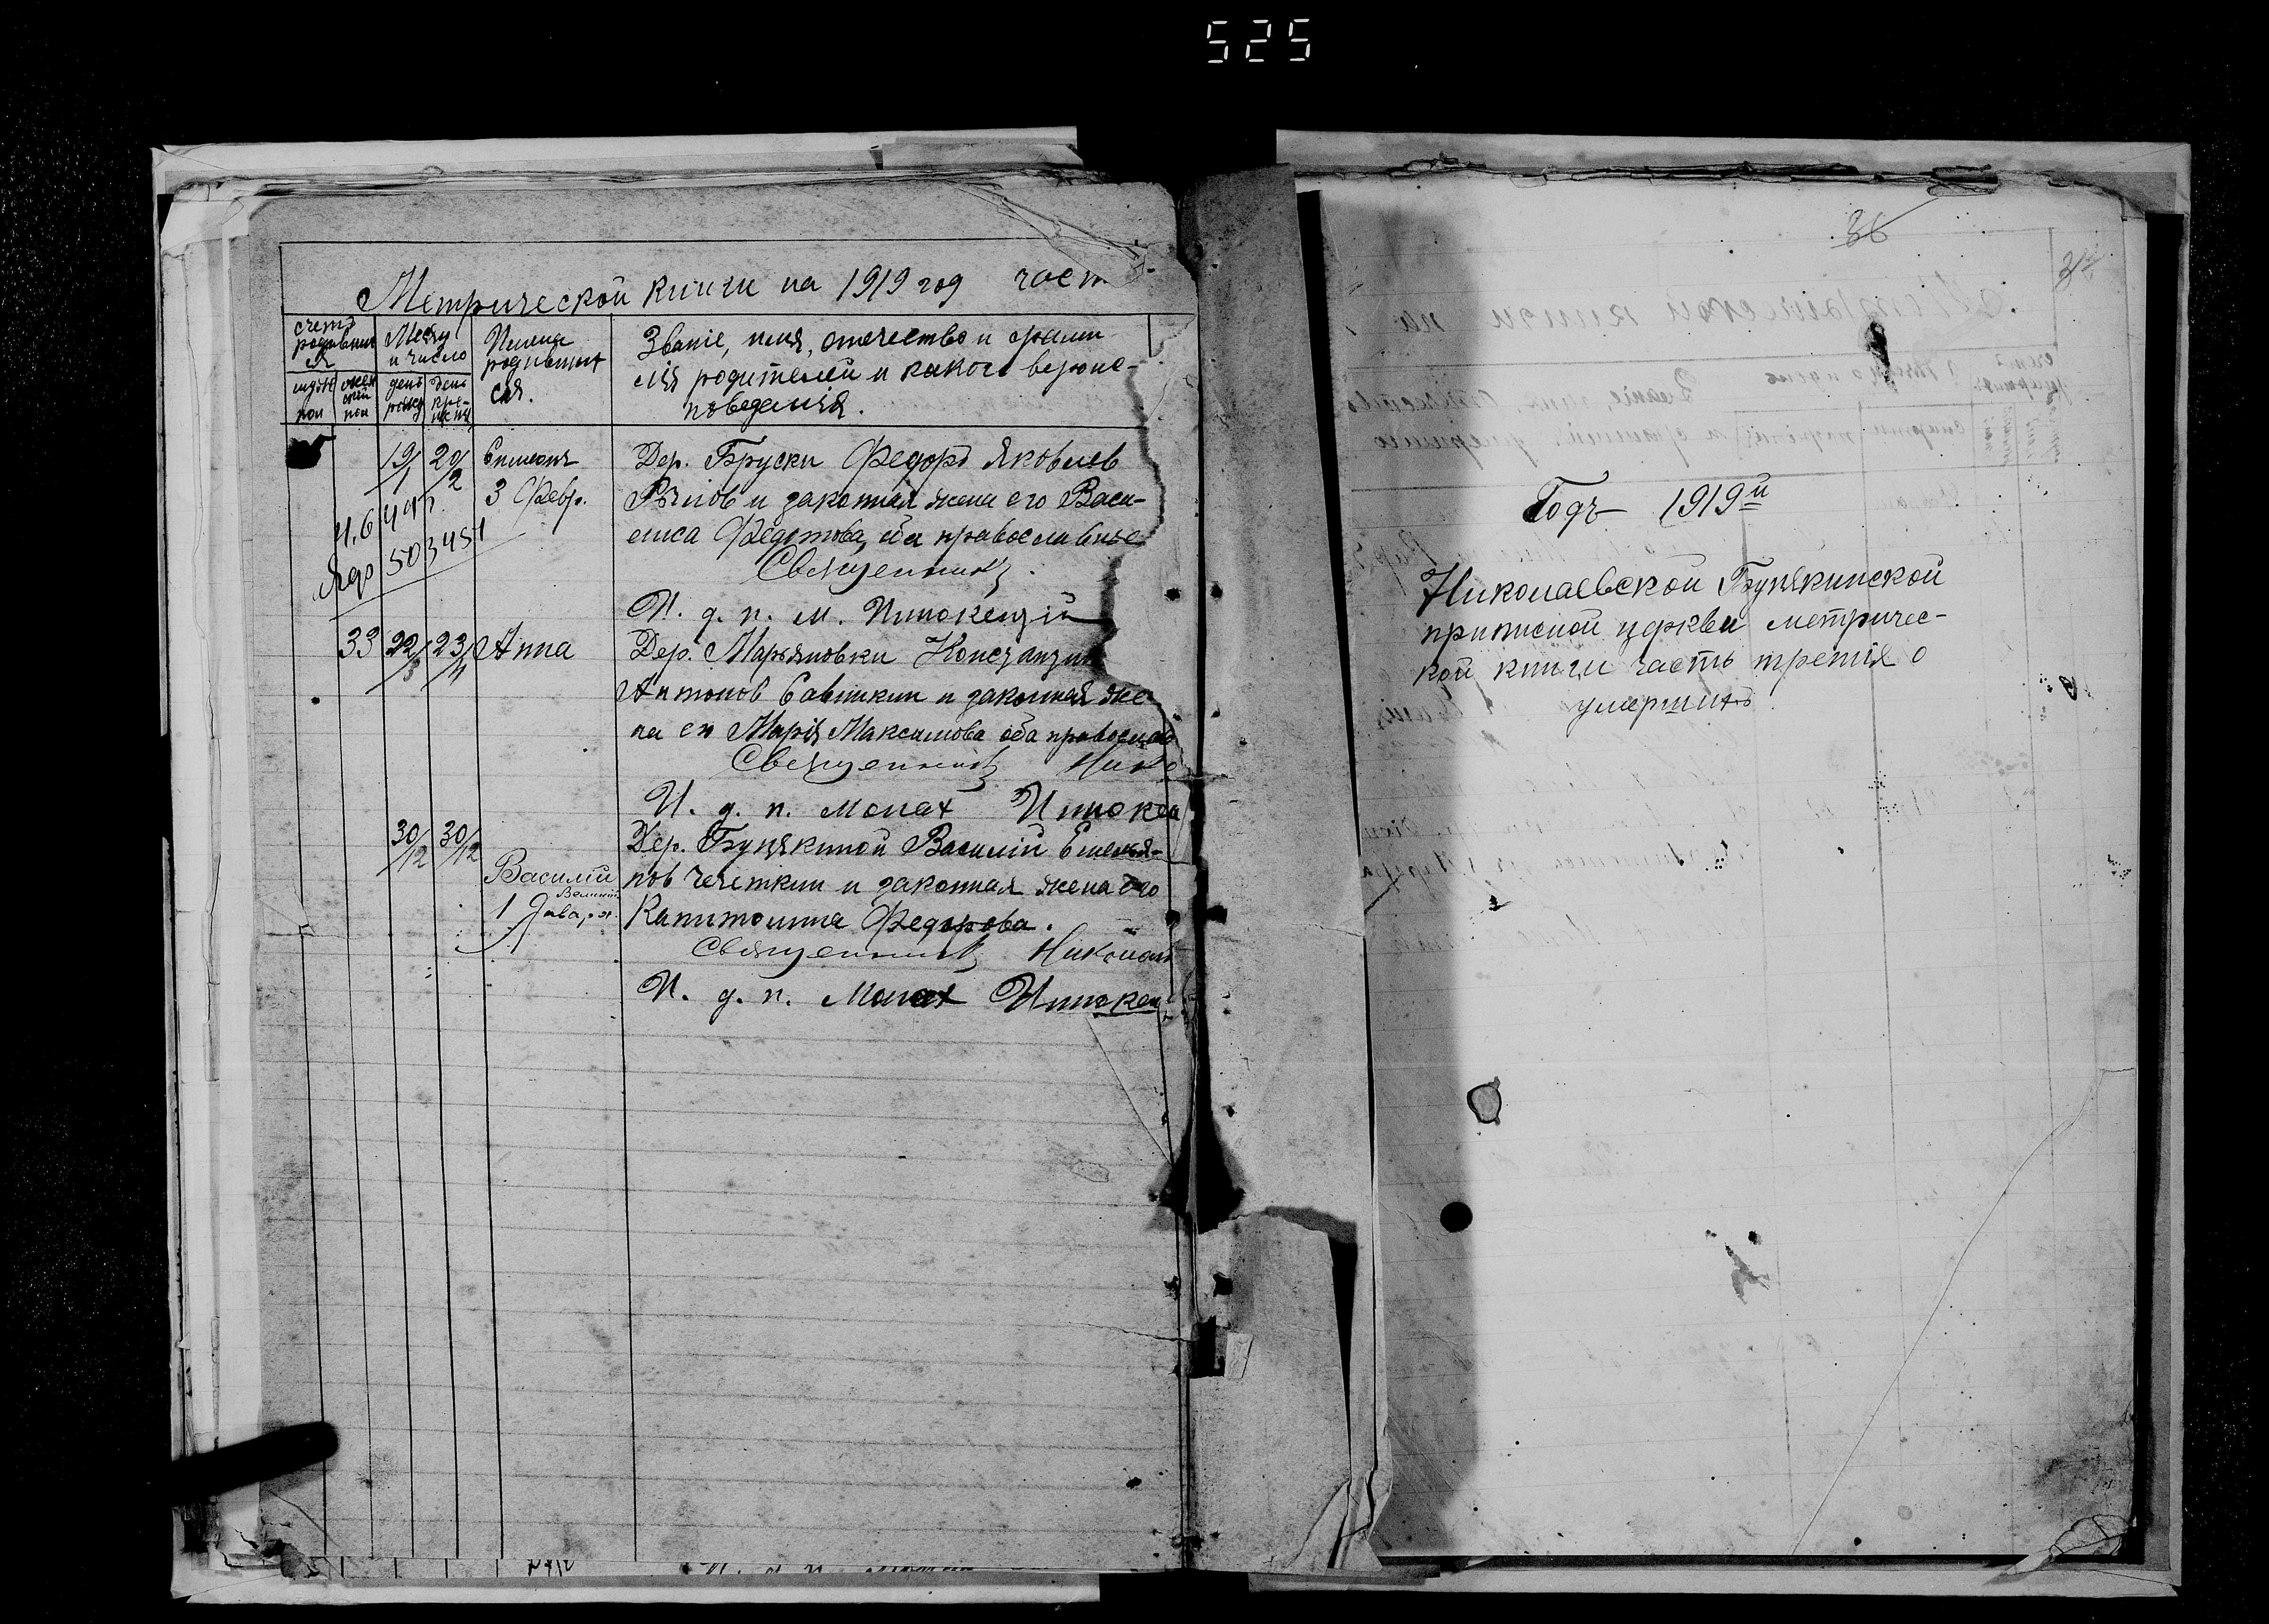 525
Метрической книги на 1919 год част
счетъ родившихся
Месяц и число
Имена родившихся.
мужеск пол
женский пол
день рожд
день крещения
Званіе, имя, отчество и фами
лія родителей и какого вероис-
поведанія.
19/1 20/2 Симеонъ
3 февр.
Дер. Бруски Федоръ Яковлев
и законная жена его Васи-
лиса Федотова, оба православные
Священникъ
И. д. п. м. Инокентій
503451
33 22/ 23/ Анна
Дер. Марьяновки Константин
Антонов Савинкин и законная же-
на ег Марія Максимова оба православ
Священникъ Нико
И. д. п. Монах Инокен
30/12 30/12
Василій
Великій
1 Января
Дер. Бунякиной Василій Емелья-
нов Чечеткин и законная жена его
Капитолина Федорова.
Священникъ Николай
И. д. п. Монах Инокен
36
Годъ 1919й
Николаевской Бунякинской
приписной церкви метричес-
кой книги часть третія о
умершихъ.